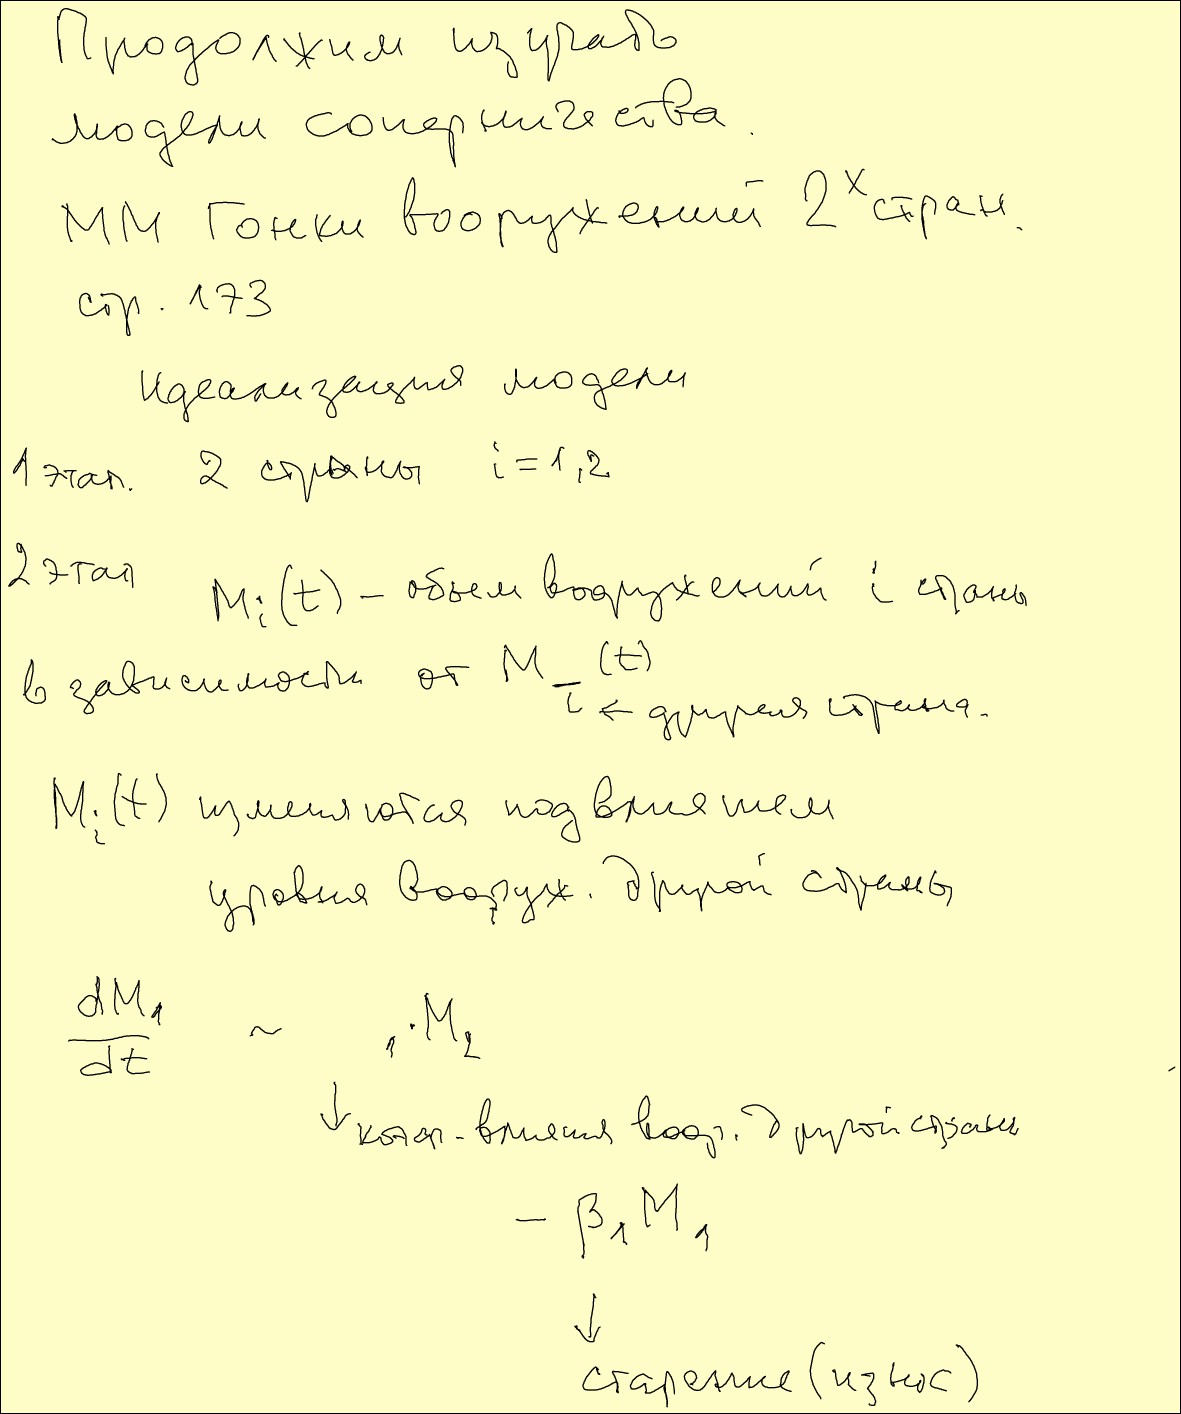 Продолжим изучать
модели соперничества.
ММ Гонки вооружений 2х стран.
стр. 173
Идеализация модели
1 этап. 2 страны i = 1,2
2 этап
Mi(t) – объем вооружений i страны
в зависимости от M_i(t)
← другая страна.
Mi(t) изменяются под влиянием
уровня вооруж. другой страны
dM1/dt ~ 1·M2
↓ коэф. влияния воор. другой страны
– β1M1
↓
старение (износ)